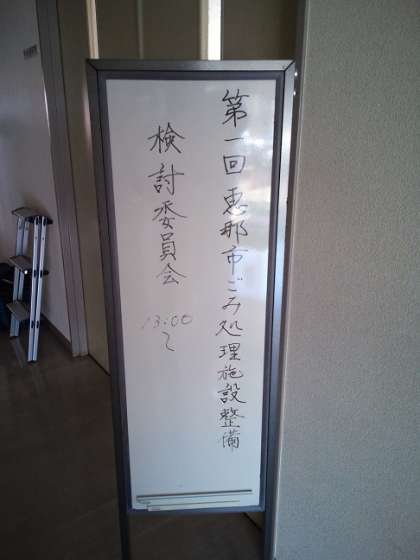 第一回恵那市ごみ処理施設整備
検討委員会
13:00
〜